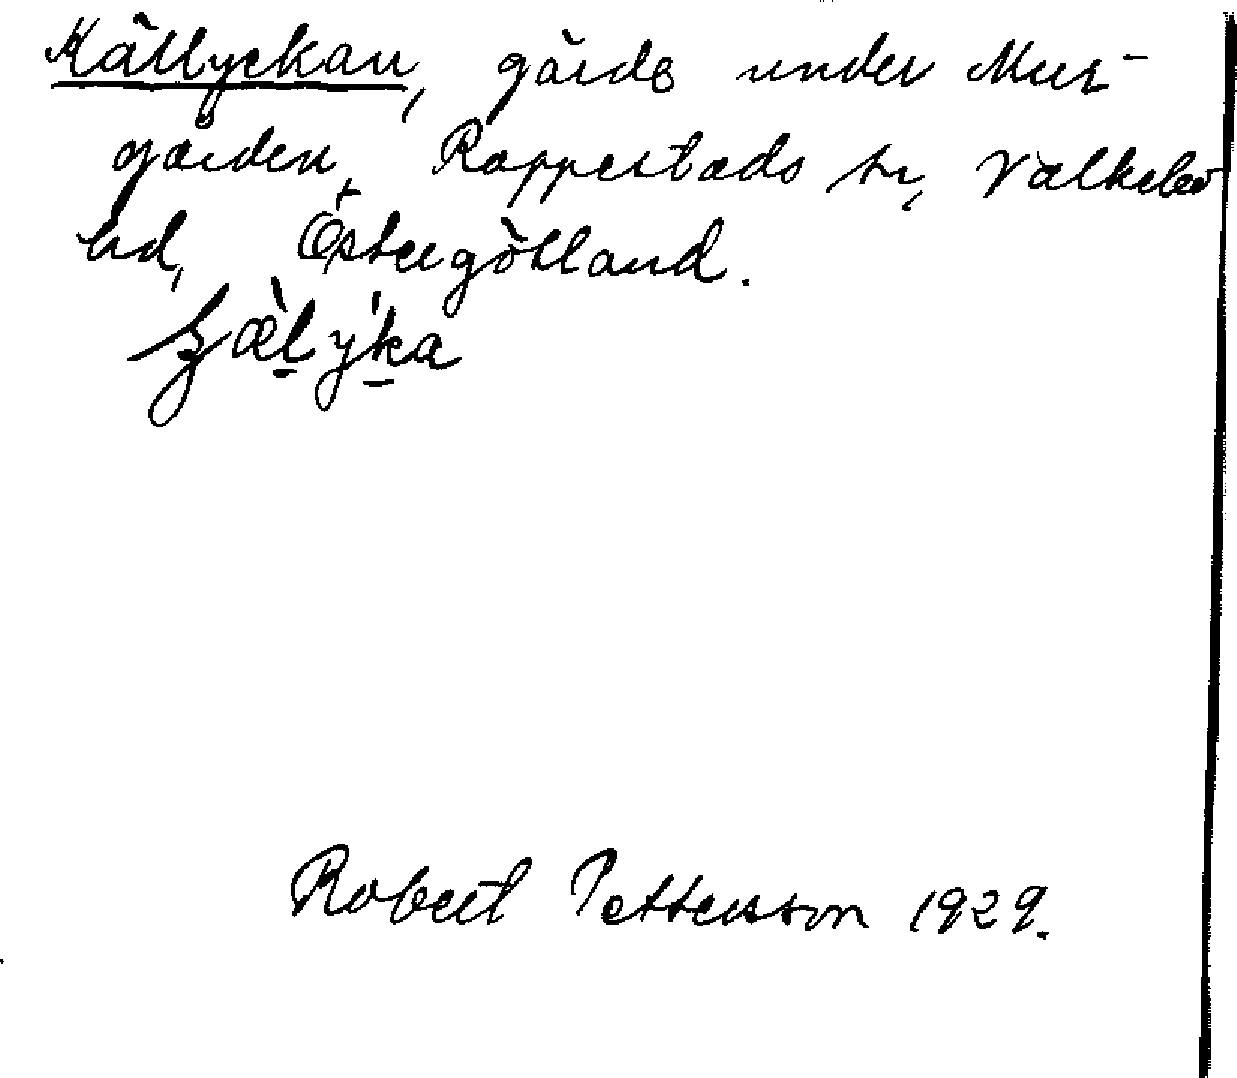 Källyckan, gärde under Mur-
gården, Rappestads sn, Valkebo
hd, Östergötland.
Robert Pettersson 1929.